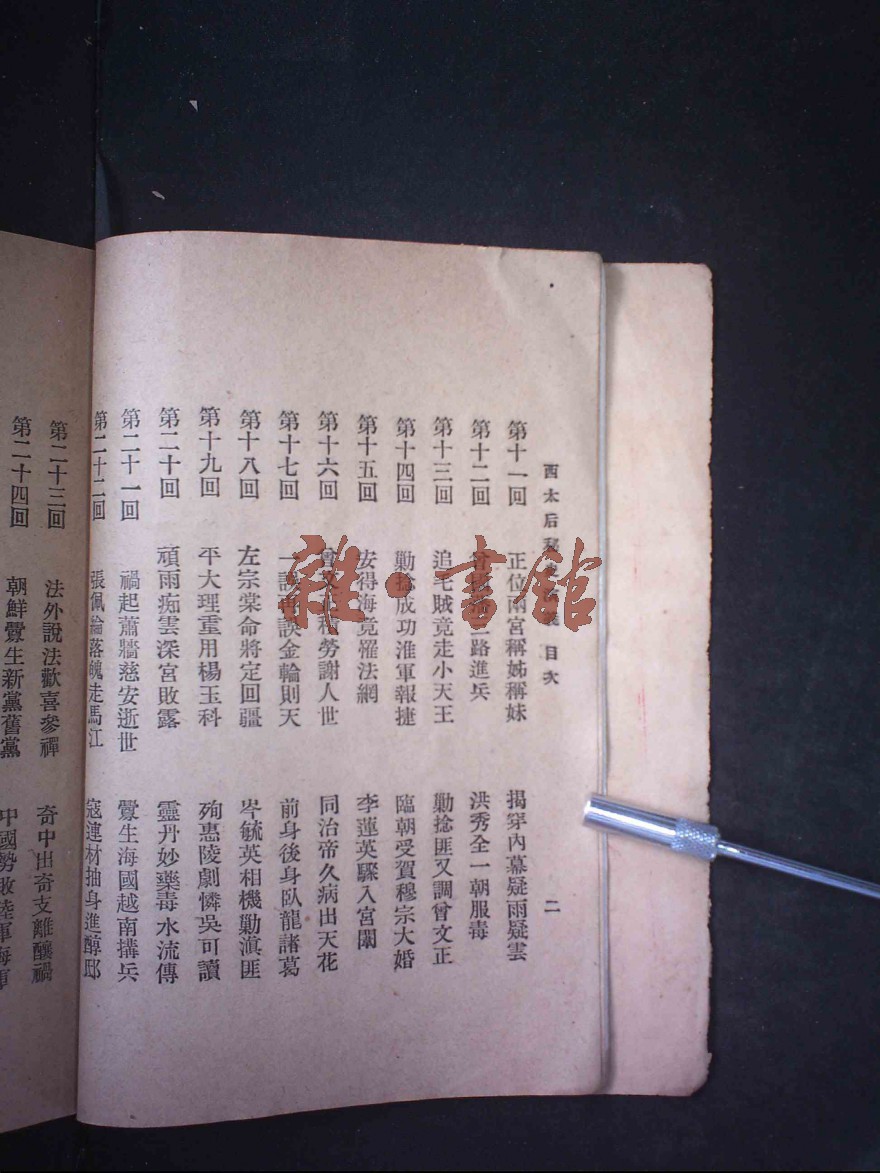 西太后秘史演義 目次 二
第十一回 正位兩宮稱姊稱妹 揭穿內幕疑雨疑雲
第十二回 曾國荃三路進兵 洪秀全一朝服毒
第十三回 追毛賊竟走小天王 勦捻匪又調曾文正
第十四回 勦捻成功淮軍報捷 臨朝受賀穆宗大婚
第十五回 安得海竟罹法網 李蓮英驟入宮闈
第十六回 曾文正積勞謝人世 同治帝久病出天花
第十七回 一誤再誤金輪則天 前身後身臥龍諸葛
第十八回 左宗棠命將定回疆 岑毓英相機勦滇匪
第十九回 平大理重用楊玉科 殉惠陵劇憐吳可讀
第二十回 頑雨痴雲深宮敗露 靈丹妙藥毒水流傳
第二十一回 禍起蕭牆慈安逝世 釁生海國越南搆兵
第二十二回 張佩綸落魄走馬江 寇連材抽身進醇邸
第二十三回 法外說法歡喜參禪 奇中出奇支離釀禍
第二十四回 朝鮮釁生新黨舊黨 中國勢敗陸軍海軍
雜·書館